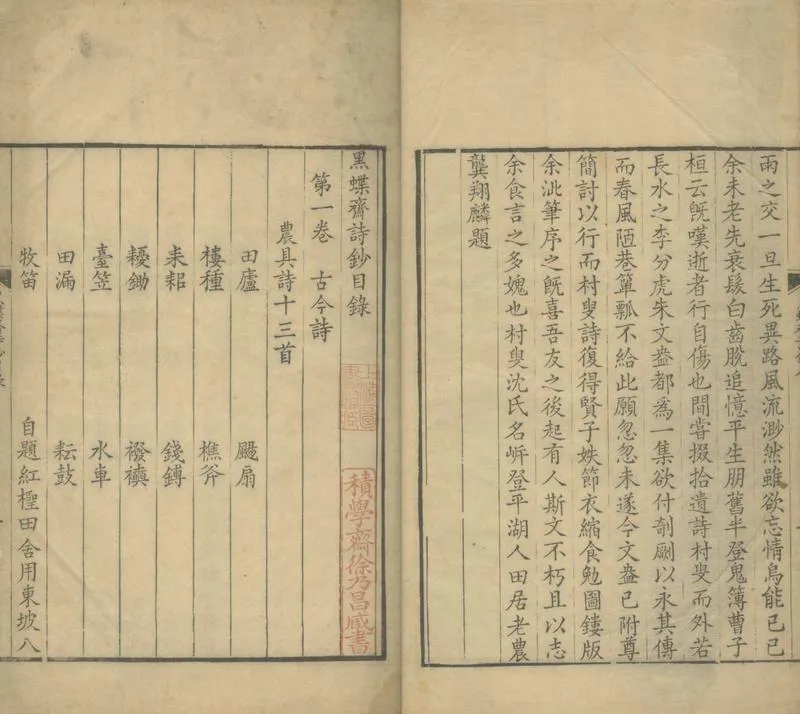 雨之交一旦生死異路風流渺然雖欲忘情烏能已已
余未老先衰髮白齒脫追憶平生朋舊半登鬼簿曹子
桓云旣嘆逝者行自傷也間嘗掇拾遺詩村叟而外若
長水之李分虎朱文盎都為一集欲付剞劂以永其傳
而春風陋巷簞瓢不給此願忽忽未遂今文盎已附尊
簡討以行而村叟詩復得賢子姪節衣縮食勉圖鏤版
余泚筆序之旣喜吾友之後起有人斯文不朽且以志
余食言之多媿也村叟沈氏名岍登平湖人田居老農
龔翔麟題
黑蝶齋詩鈔目錄
第一卷 古今詩
農具詩十三首
田廬 颺扇
樓種 樵斧
耒耜 錢鎛
耰鋤 襏襫
臺笠 水車
田漏 耘鼓
牧笛 自題紅檉田舍用東坡八
積學齋徐乃昌藏書